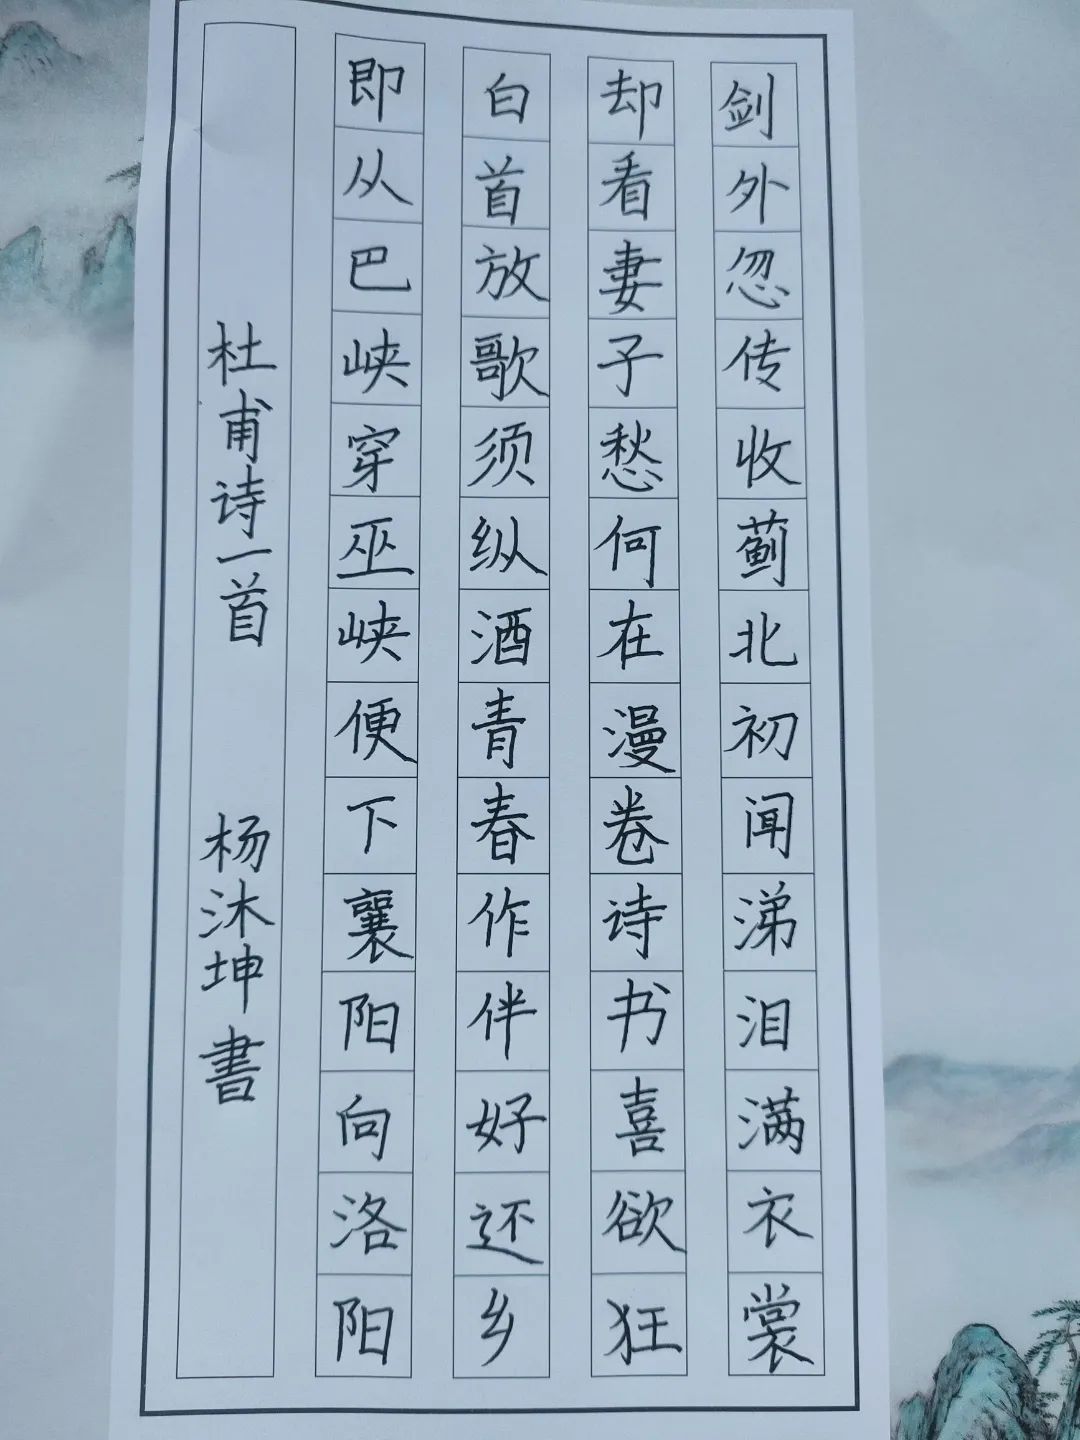 剑外忽传收蓟北初闻涕泪满衣裳
却看妻子愁何在漫卷诗书喜欲狂
白首放歌须纵酒青春作伴好还乡
即从巴峡穿巫峡便下襄阳向洛阳
杜甫诗一首 杨沐坤書